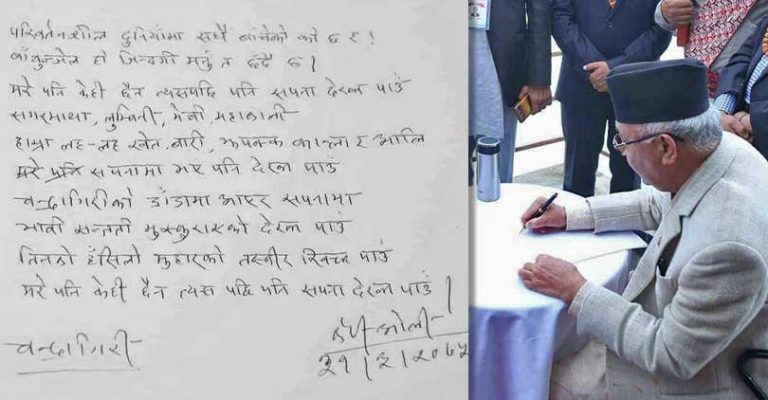 परिवर्तनशील दुनियाँमा सधैँ बाँचेको को छ र !
बाँचुन्जेल हो जिन्दगी मर्नु त छँदै छ ।
मरे पनि केही छैन त्यसपछि पनि सपना देख्न पाउँ
सगरमाथा, लुम्बिनी, मेची, महाकाली
हाम्रा लह-लह खेत, बारी, कान्ला र आलि
मरे पनि सपनामा भए पनि देख्न पाउँ
चन्द्रागिरीको डाँडामा आएर सपनामा
भावी सन्तती मुस्कुराएको देख्न पाउँ
तिनको हँसिलो मुहारको तस्वीर खिच्न पाउँ
मरे पनि केही छैन त्यस पछि पनि सपना देख्न पाउँ ।
केपी ओली
चन्द्रागिरी